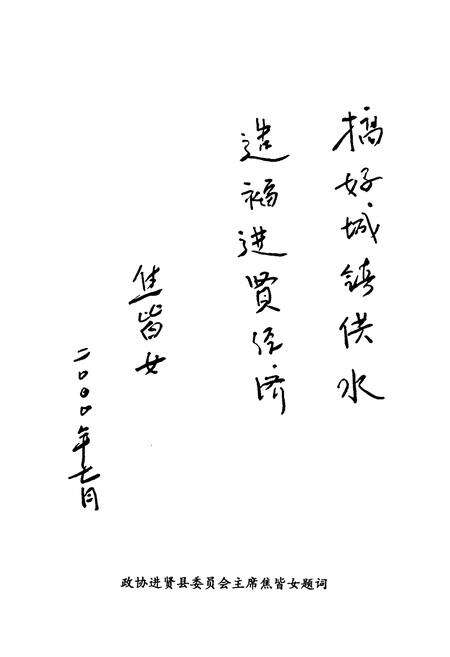 搞好城镇供水
造福进贤经济
焦皆女
二〇〇〇年七月
政协进贤县委员会主席焦皆女题词